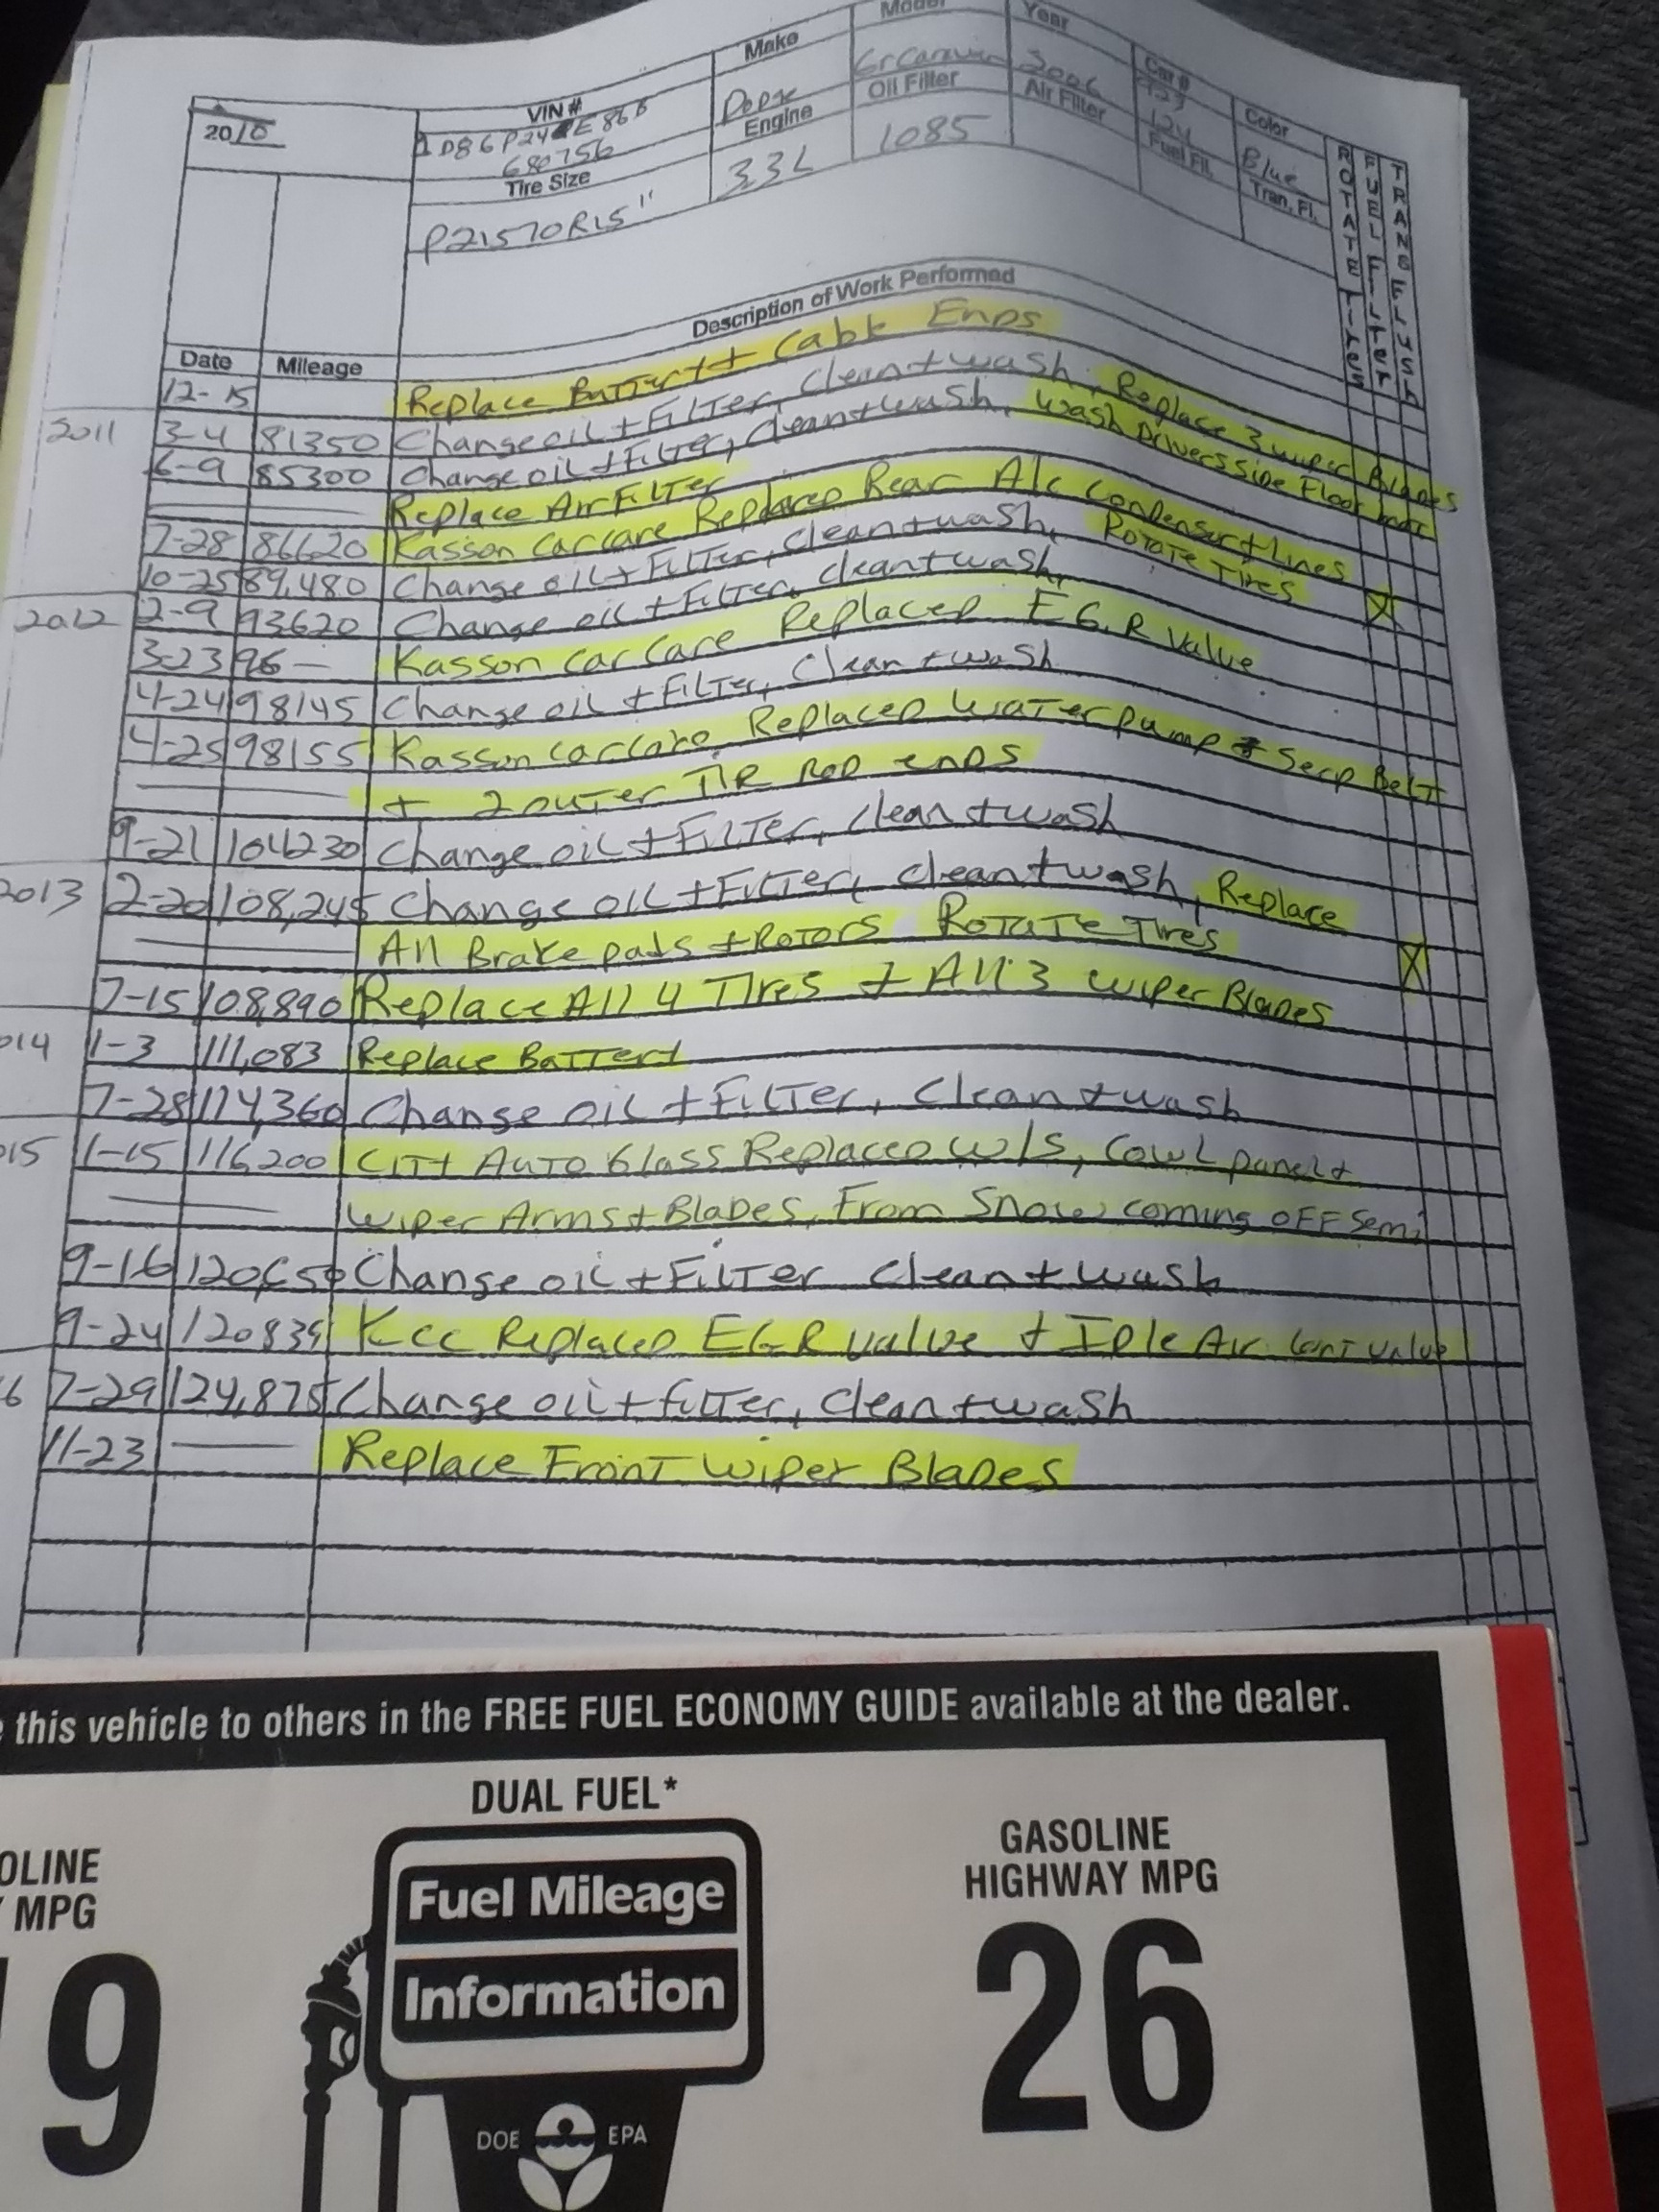 Make Model Year Car #
VIN # Gr Caravan 2006 923 Color
2010 Dodge Oil Filter Air Filter 124 Blue
680756 Engine 1085 Fuel Fil. Tran. Fl.
Tire Size 3.3L
P21570R15"
ROTATE TIRES
FUEL FILTER
TRANS FLUSH
Description of Work Performed
Date Mileage
12-15 Replace Battery + Cable Ends
2011 3-4 81350 Change oil + Filter, Clean + wash, Replace 3 wiper Blades
6-9 85300 Change oil + Filter, clean + wash, Wash Drivers side Floor mat
Replace Air Filter
7-28 86620 Kasson Car care Replaced Rear A/c Condensur + Lines
10-25 89,480 Change oil + Filter, clean + wash, Rotate Tires X
2012 2-9 93620 Change oil + Filter, clean + wash,
3-23 96— Kasson Car Care Replaced E.G.R Valve
4-24 98145 Change oil + Filter, Clean + wash
4-25 98155 Kasson Car Care, Replaced Water pump + Serp Belt
+ 2 outer TIR ROD ends
9-21 104230 Change oil + Filter, Clean + wash
2013 2-20 108,245 Change oil + Filter, clean + wash, Replace
All Brake pads + Rotors Rotate Tires X
7-15 108,890 Replace All 4 Tires + All 3 wiper Blades
014 1-3 111,083 Replace Battery
7-28 114,360 Change oil + Filter, Clean + wash
015 1-15 116,200 City Auto Glass Replaced W/S, Cowl panel +
Wiper Arms + Blades, From Snow coming OFF Semi
9-16 120,650 Change oil + Filter Clean + wash
9-24 120839 Kcc Replaced EGR valve + Idle Air Cont valve
6 7-29 124,875 Change oil + filter, Clean + wash
11-23 Replace Front Wiper Blades
this vehicle to others in the FREE FUEL ECONOMY GUIDE available at the dealer.
DUAL FUEL*
OLINE
MPG
9
Fuel Mileage
Information
DOE EPA
GASOLINE
HIGHWAY MPG
26